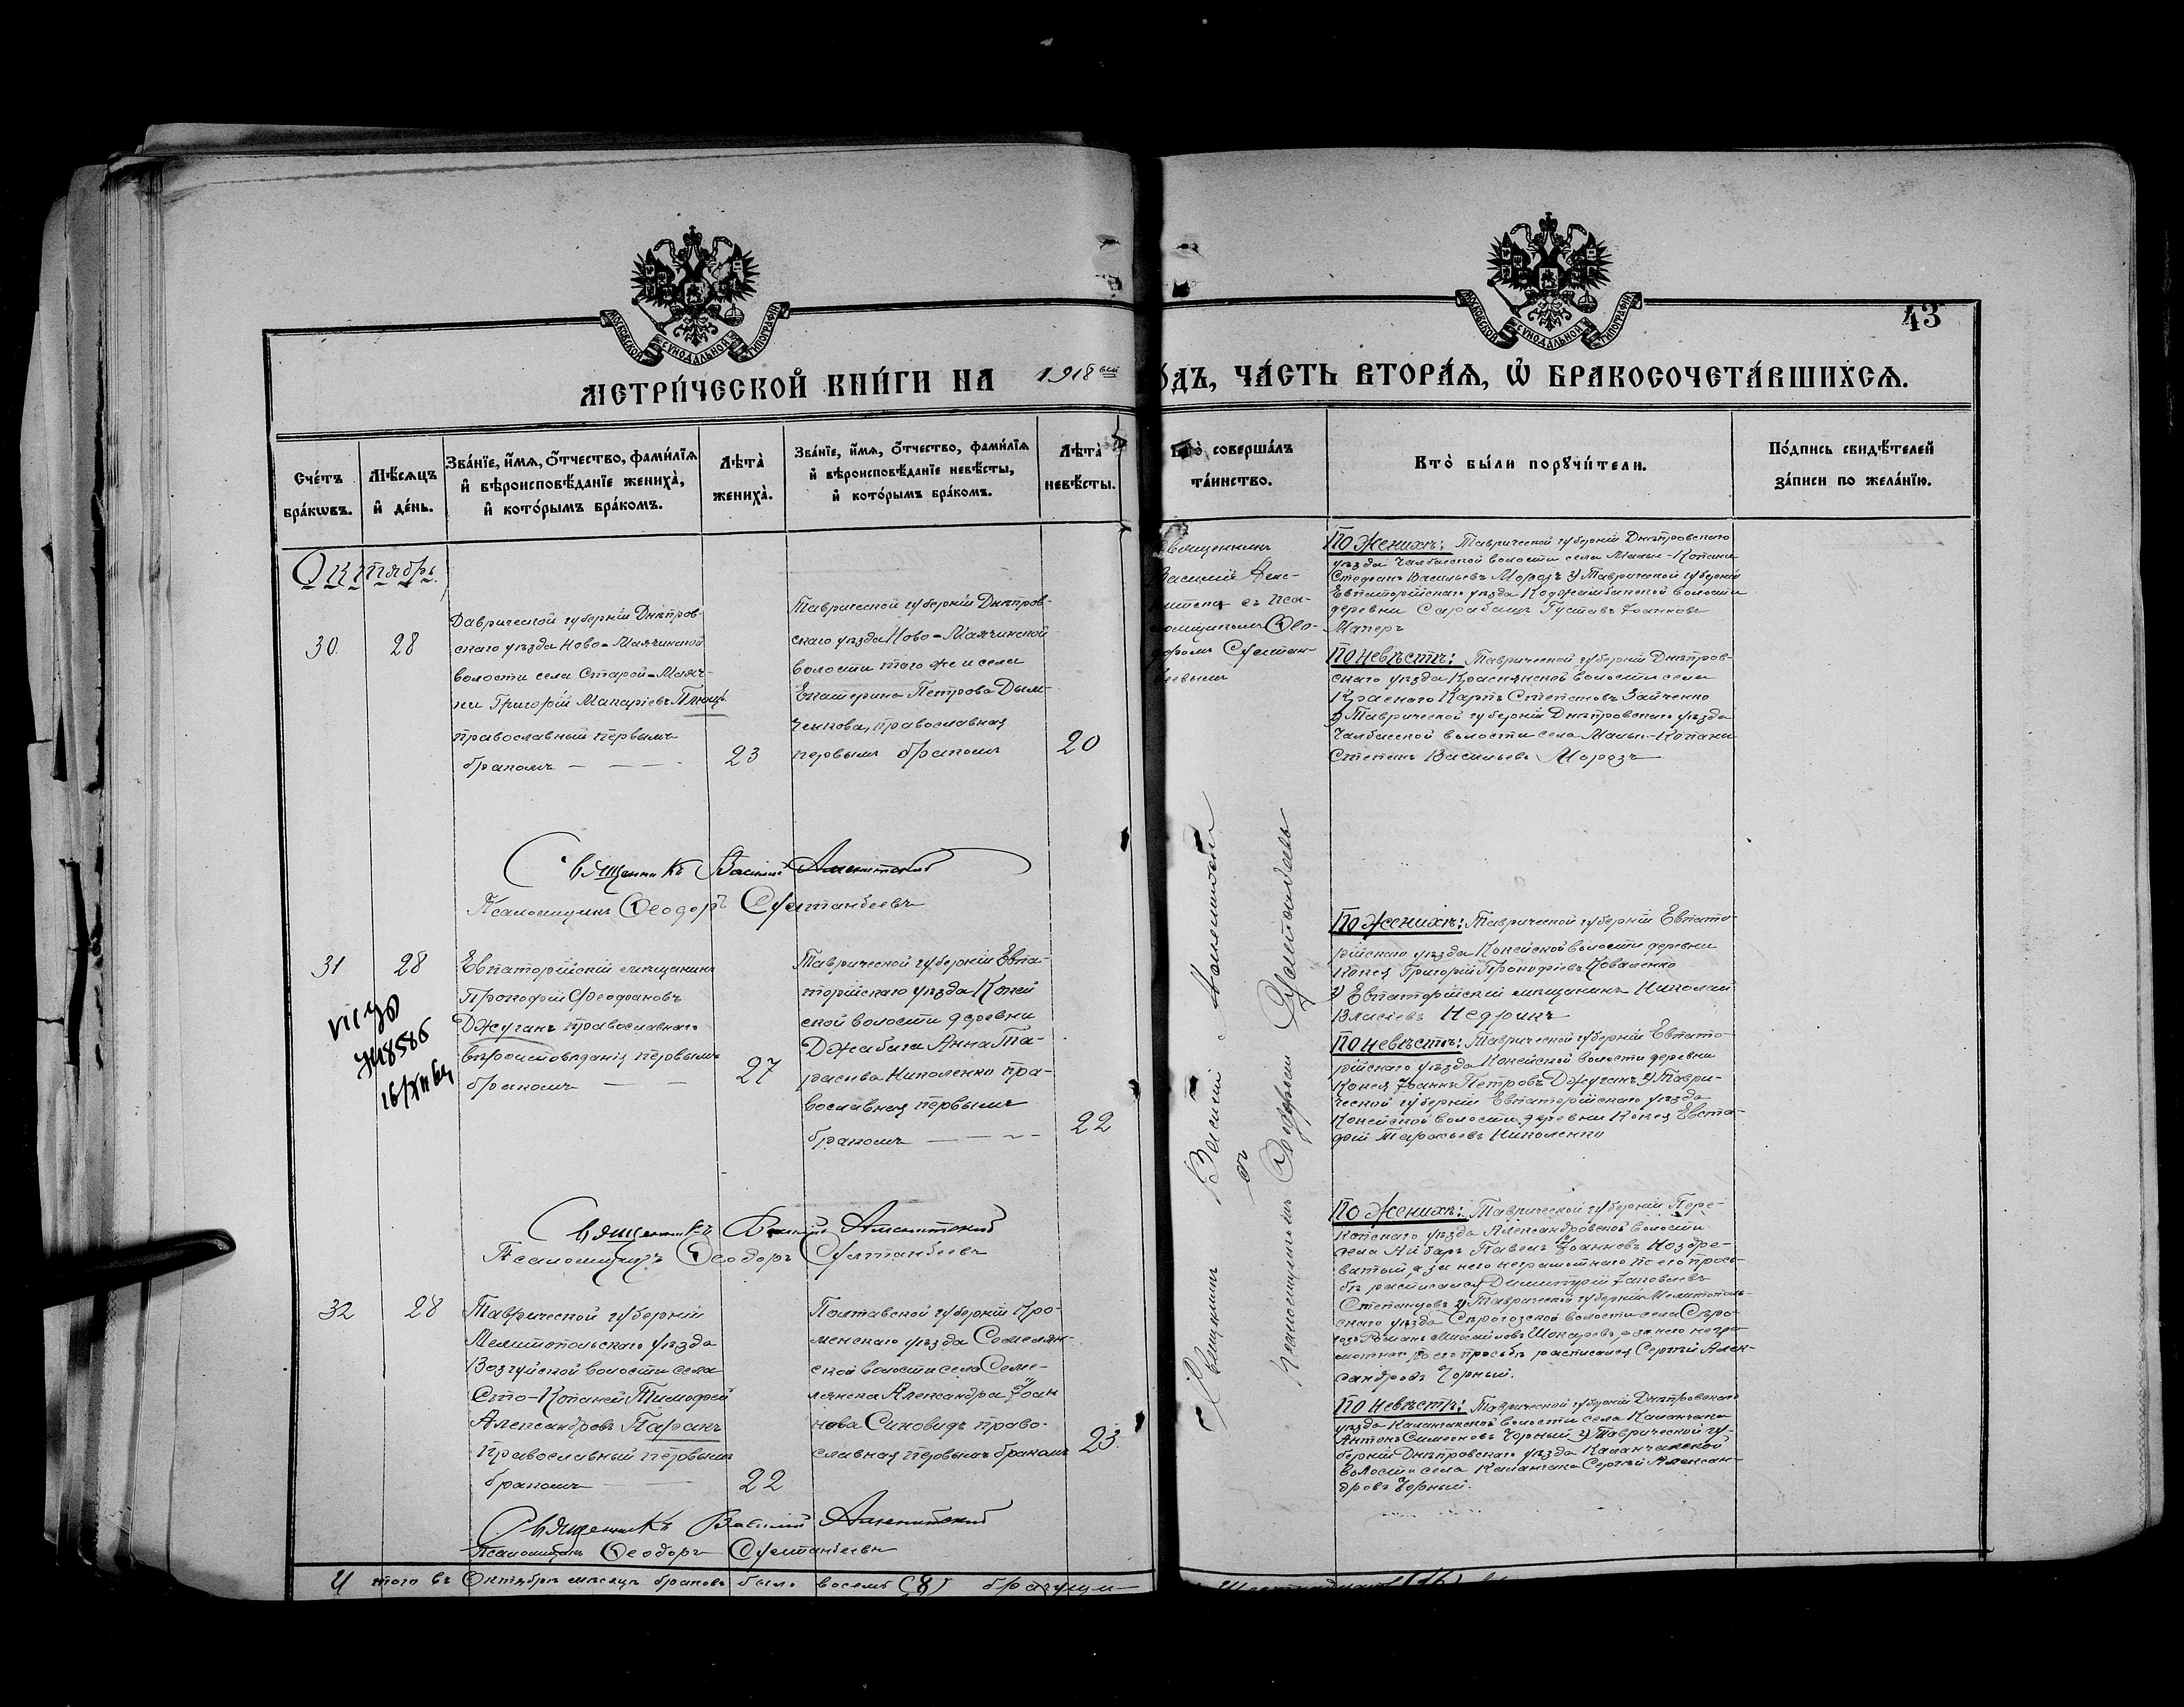 МОСКОВСКОЙ СѴНОДАЛЬНОЙ ТИПОГРАФІИ
МОСКОВСКОЙ СѴНОДАЛЬНОЙ ТИПОГРАФІИ
43
МЕТРИ́ЧЕСКОЙ КНИ́ГИ НА 1918 ОДЪ, ЧА́СТЬ ВТОРА́Я, Ѡ БРАКОСОЧЕТА́ВШИХСЯ.
Сче́тъ бра́кѡвъ.
Мѣ́сяцъ и де́нь.
Зва́нїе, и́мя, о́тчество, фами́лїя и вѣроисповѣ́данїе жениха̀, и кото́рымъ бра́комъ.
Лѣта̀ жениха̀.
Зва́нїе, и́мя, о́тчество, фами́лїя и вѣроисповѣ́данїе невѣ́сты, и кото́рымъ бра́комъ.
Лѣта̀ невѣ́сты.
совершалъ та́инство.
Кто̀ бы́ли порꙋчи́тели.
По́дпись свидѣ́телей за́писи по жела́нїю.
Октябрь
30.
28
Таврической губерніи Днѣпров-
скаго уѣзда Ново-Маячинской
волости села Старой-Маяч-
ки Григорій Макаріевъ
православный первымъ
бракомъ
23
Таврической губерніи Днѣпров-
скаго уѣзда Ново-Маячинской
волости того же и села
Екатерина Петрова Дым-
ченкова, православная
первымъ бракомъ
20
Священникъ
Василій
съ Пса-
ломщикомъ Ѳео-
доромъ Султан-
бѣевымъ
По Женихѣ: Таврической губерніи Днѣпровскаго
уѣзда Чалбасской волости села Малы-Копани
Стефанъ Васильевъ Морозъ 2) Таврической губерніи
Евпаторійскаго уѣзда Коджамбакской волости
деревни Сарабашъ Густавъ Іоанновъ
Маперъ
По Невѣстѣ: Таврической губерніи Днѣпров-
скаго уѣзда Краснянской волости села
Краснаго Карпъ Степановъ Зайченко
2) Таврической губерніи Днѣпровскаго уѣзда
Чалбасской волости села Малы-Копани
Степанъ Васильевъ Морозъ
Священникъ Василій
Псаломщикъ Ѳеодоръ Султанбеевъ
31
28
Евпаторійскій мѣщанинъ
Прокофій Феофановъ
Джуганъ православнаго
вѣроисповѣданія первымъ
бракомъ
27
Таврической губерніи Евпа-
торійскаго уѣзда Коней
ской волости деревни
Джабага Анна Та-
расова Николенко пра-
вославная первымъ
бракомъ
22
Священникъ Василій
съ
Псаломщикомъ Ѳеодоромъ
По Женихѣ: Таврической губерніи Евпато-
рійскаго уѣзда Конейской волости деревни
Конея Григорій Прокофіевъ Коваленко
2) Евпаторійскій мѣщанинъ Николай
Власіевъ Недрикъ
По Невѣстѣ: Таврической губерніи Евпато-
рійскаго уѣзда Конейской волости деревни
Конея Іоаннъ Петровъ Джуганъ 2) Таври-
ческой губерніи Евпаторійскаго уѣзда
Конейской волости деревни Конея Евста-
фій Тарасьевъ Николенко
Священникъ Василій
Псаломщикъ Ѳеодоръ Султанбеевъ
32
28
Таврической губерніи
Мелитопольскаго уѣзда
волости села
Сто-Копаней Тимофей
Александровъ Паранъ
Православный первымъ
бракомъ
22
Полтавской губерніи Кро-
менскаго уѣзда Семелян-
ской волости села Семе-
лянска Александра Іоан
нова Синовидъ право-
славная первымъ бракомъ
23.
По Женихѣ: Таврической губерніи Пере-
копскаго уѣзда Александровской волости
села Айбаръ Павелъ Іоанновъ Ноздре-
ватый, а за него неграмотнаго по его прось-
бѣ расписался Димитрій Іаковлевъ
Степанцовъ 2) Таврической губерніи Мелитополь-
скаго уѣзда Сѣрогозской волости села Сѣро-
гозъ Романъ Михайловъ Шокаревъ, а за него негра-
мотнаго по его просьбѣ расписался Сергій Алек-
сандровъ Чорный.
По Невѣстѣ: Таврической губерніи Днѣпровскаго
уѣзда Каланчакской волости села Каланчака
Антонъ Симеоновъ Чорный 2) Таврической гу-
берніи Днѣпровскаго уѣзда Каланчакской
волости села Каланчака Сергѣй Алексан-
дровъ Чорный.
Священникъ Василій
Псаломщикъ Ѳеодоръ Султанбеевъ
Итого въ Октябрѣ мѣсяцѣ браковъ было восемь (8)